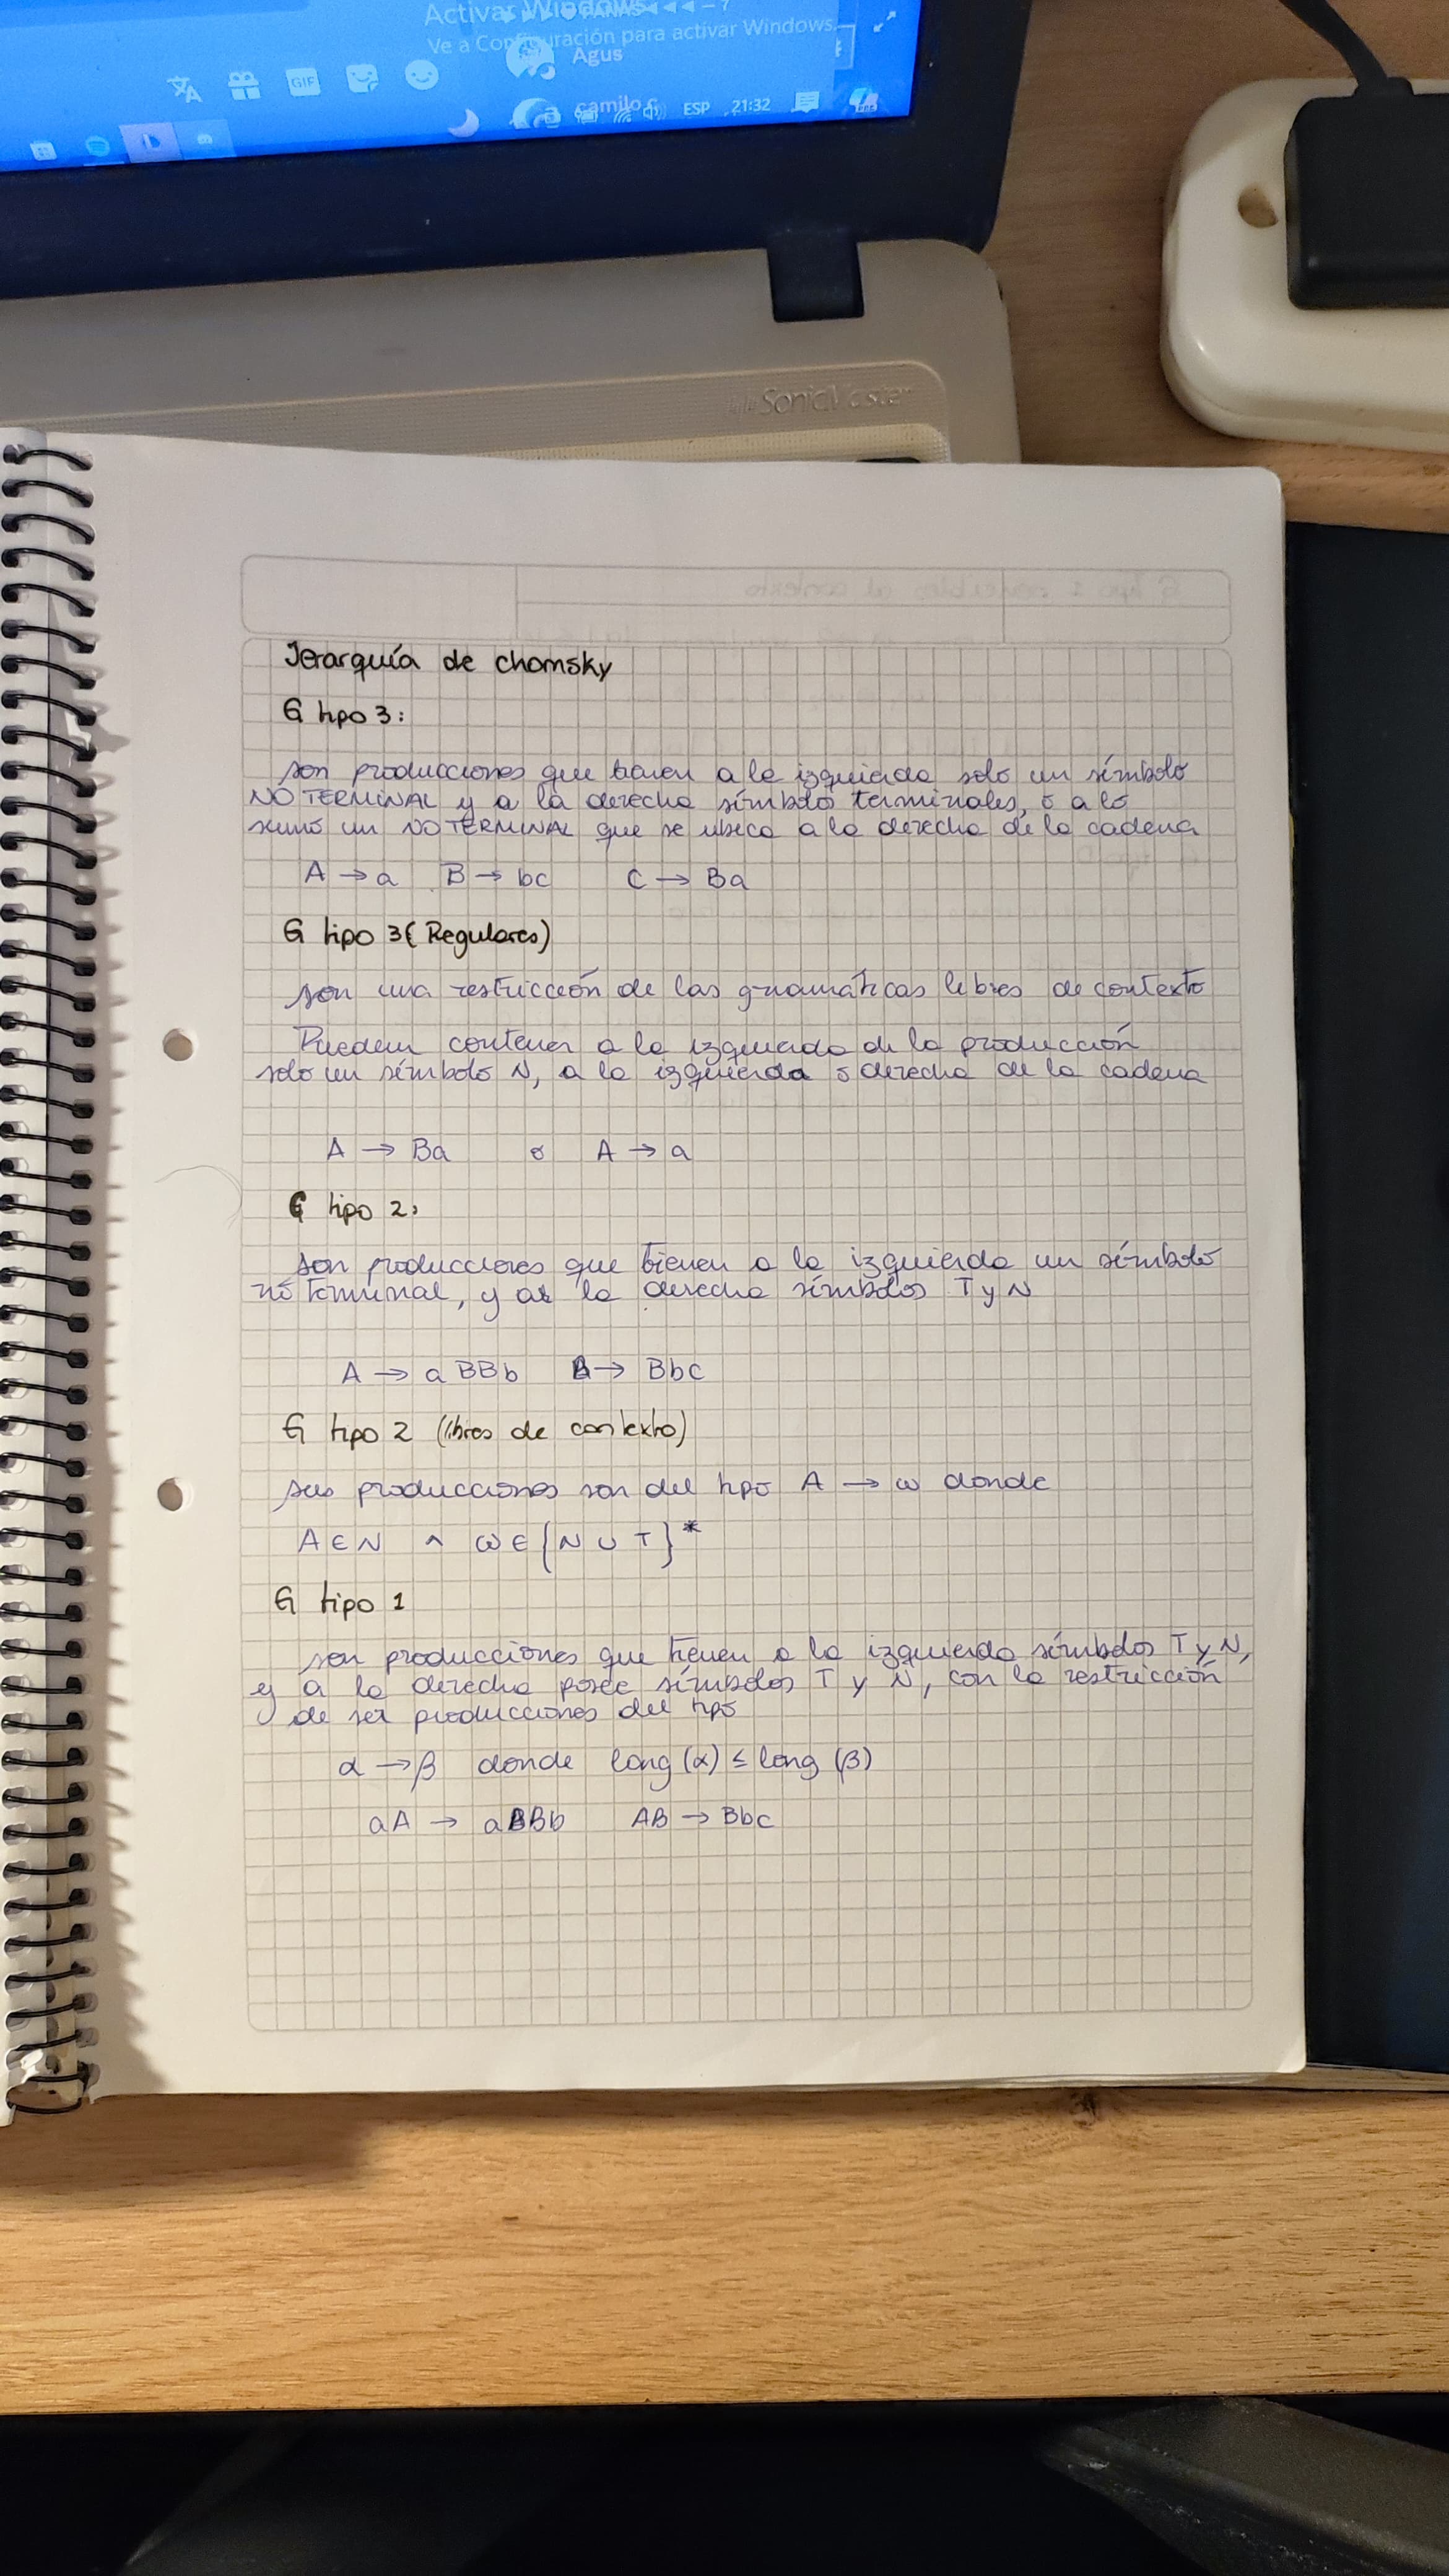 Activar Windows
Ve a Configuración para activar Windows.
Agus
GIF
camilo c
ESP
21:32
SonicMaster
Jerarquía de chomsky
G tipo 3:
son producciones que tienen a la izquierda solo un símbolo
NO TERMINAL y a la derecha símbolos terminales, o a lo
sumo un NO TERMINAL que se ubica a la derecha de la cadena
A → a B → bc C → Ba
G tipo 3 (Regulares)
son una restricción de las gramáticas libres de contexto
Pueden contener a la izquierda de la producción
solo un símbolo N, a la izquierda o derecha de la cadena
A → Ba o A → a
G tipo 2:
son producciones que tienen a la izquierda un símbolo
no terminal, y a la derecha símbolos T y N
A → aBBb B → Bbc
G tipo 2 (libres de contexto)
sus producciones son del tipo A → ω donde
A ∈ N ^ ω ∈ {N ∪ T}*
G tipo 1
son producciones que tienen a la izquierda símbolos T y N,
y a la derecha posee símbolos T y N, con la restricción
de ser producciones del tipo
α → β donde long (α) ≤ long (β)
aA → aBBb AB → Bbc